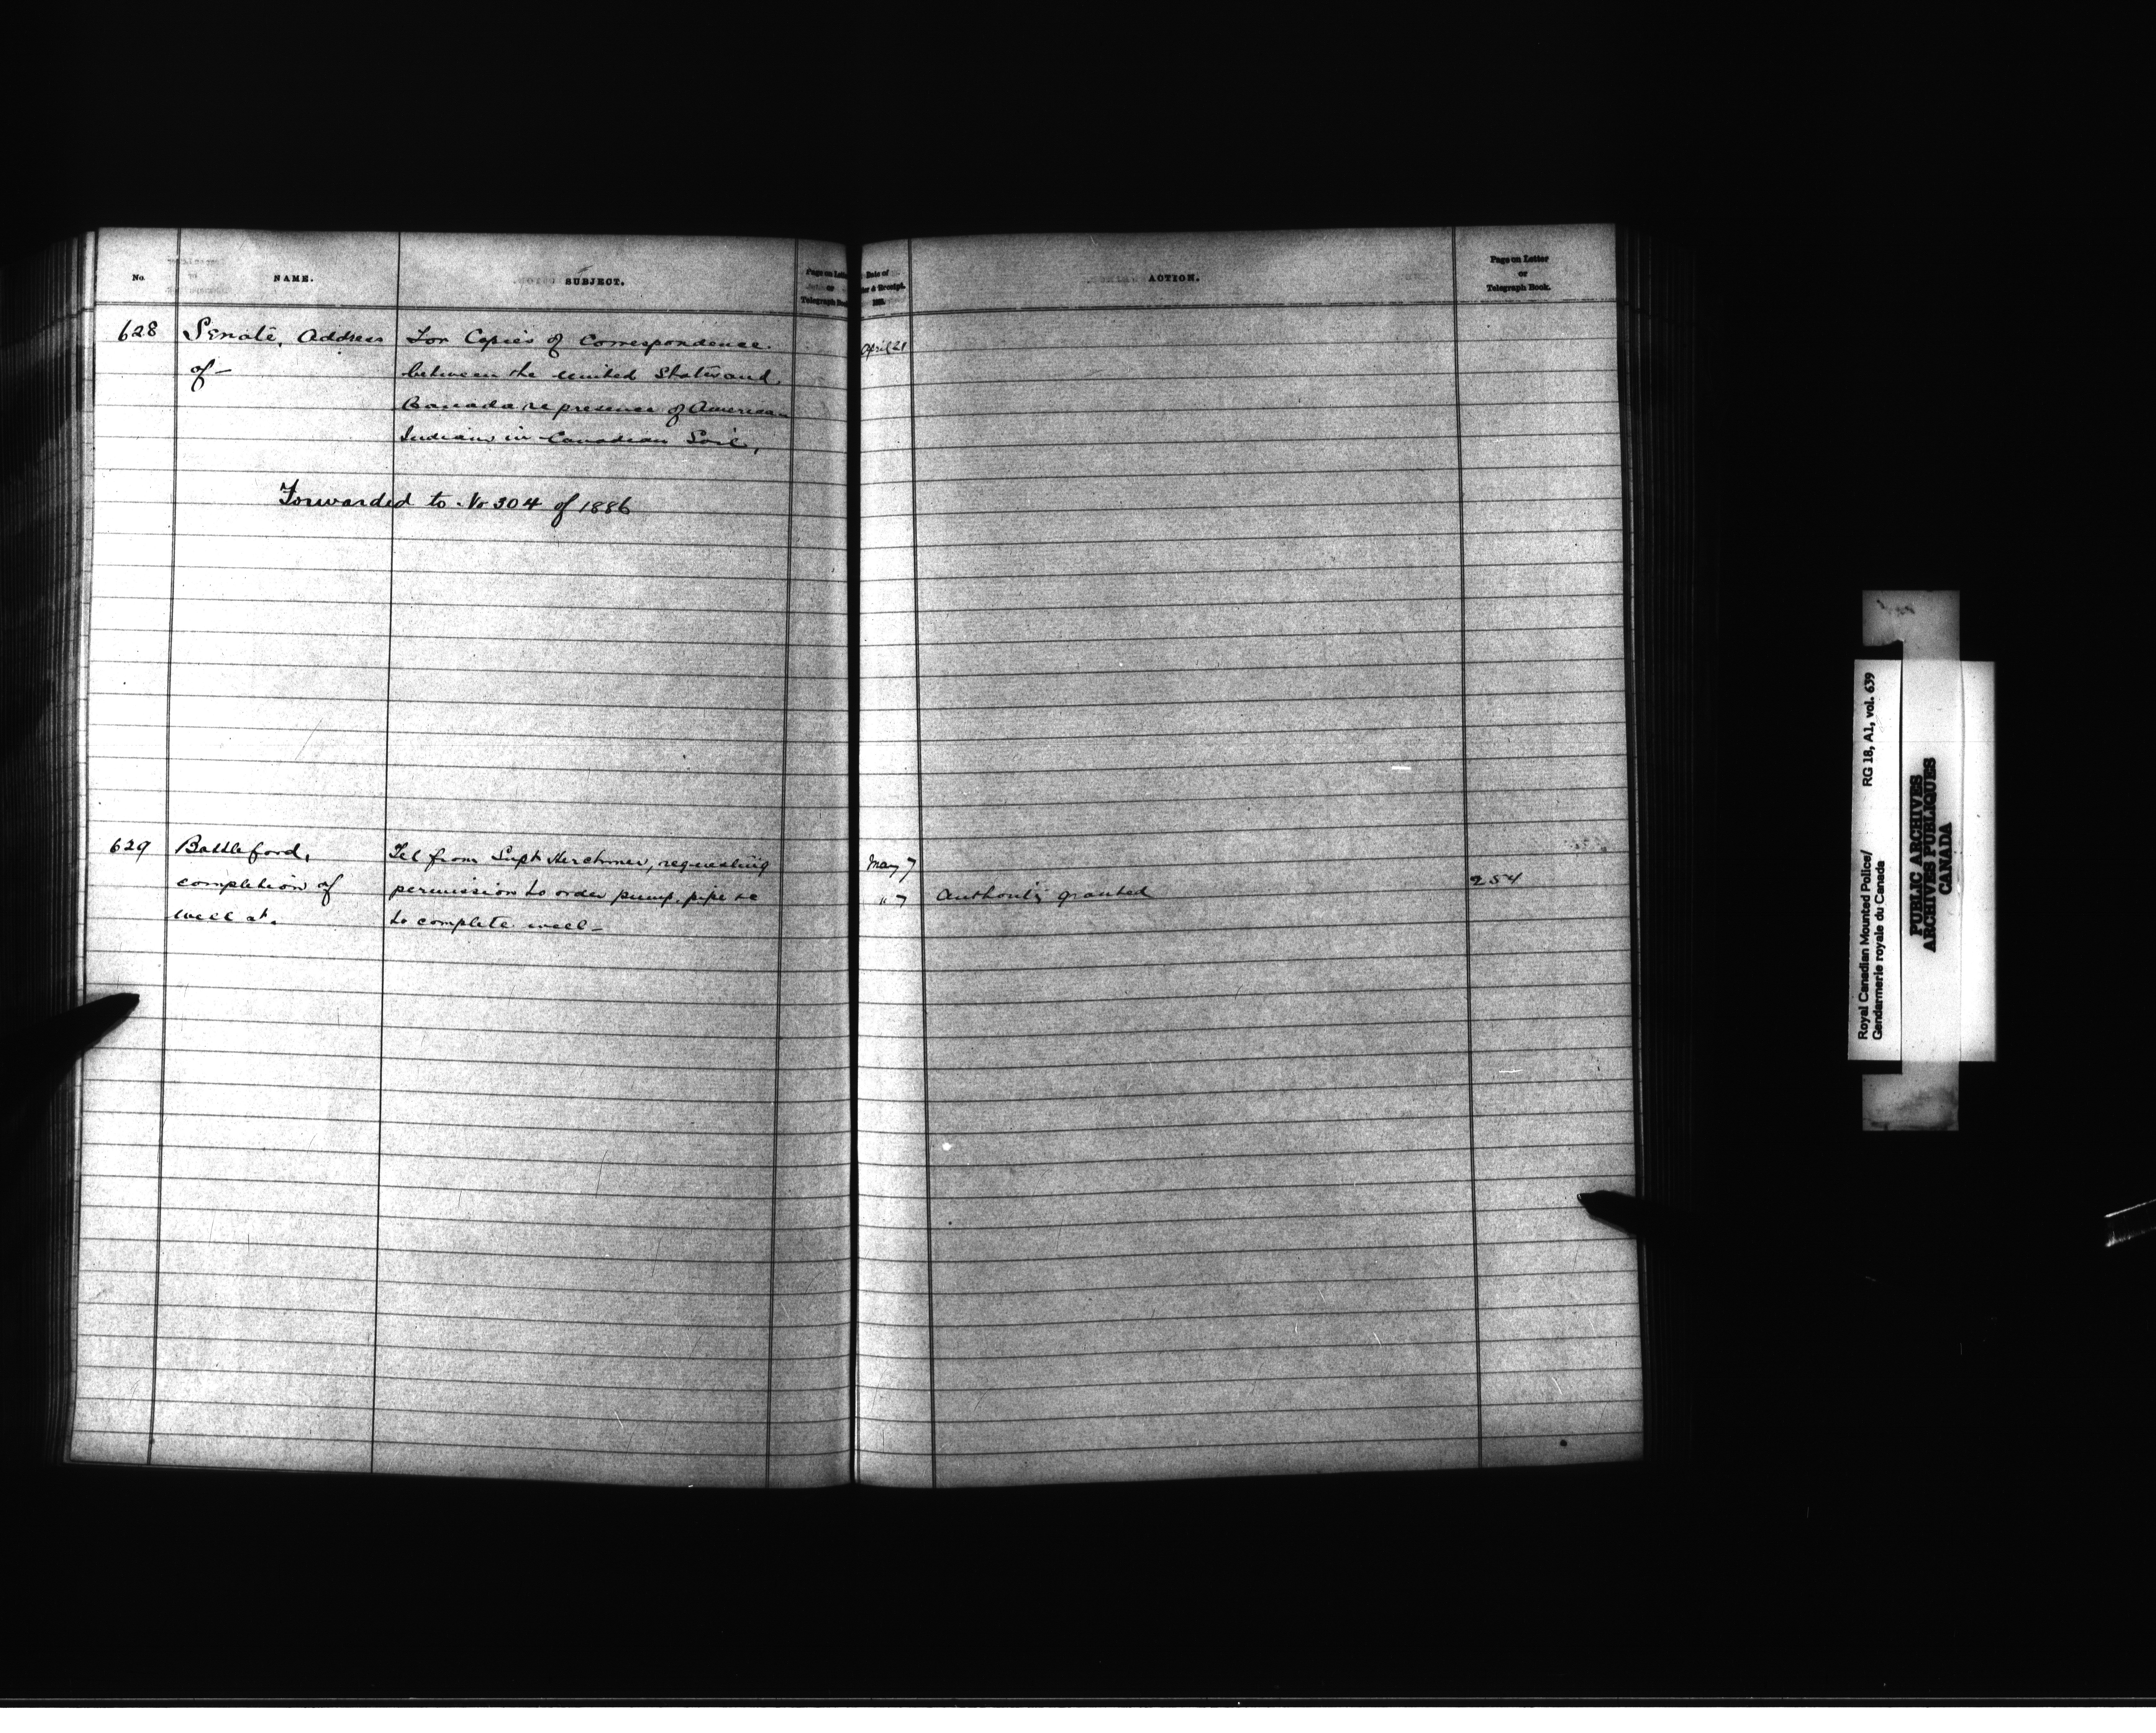 No.
NAME.
SUBJECT.
Page on Letter
or
Telegraph Book.
Date of
& Receipt.
188
ACTION.
Page on Letter
or
Telegraph Book.
628
Senate, Address
of—
For Copies of Correspondence.
between the United States and
Canada re presence of American
Indians in Canadian Soil,
April 21
Forwarded to No 304 of 1886
629
Battleford,
completion of
well at.
Tel from Supt Herchmer, requesting
permission to order pump, pipe &c
to complete well—
May 7
" 7
Authority granted
254
Royal Canadian Mounted Police/
Gendarmerie royale du Canada
RG 18, A1, vol. 639
PUBLIC ARCHIVES
ARCHIVES PUBLIQUES
CANADA